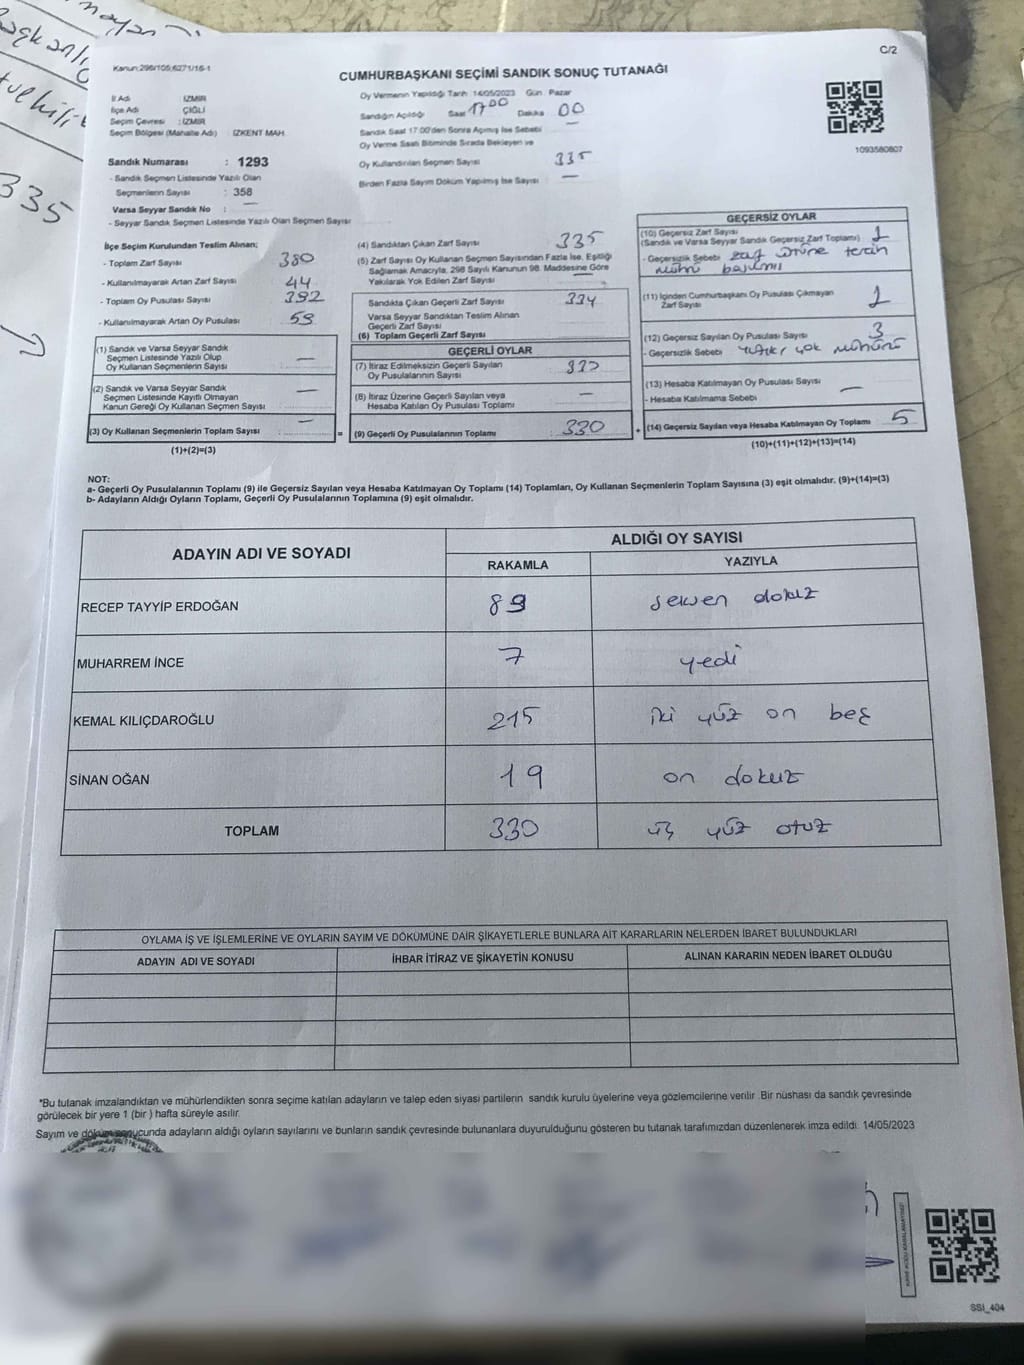 335
C/2
Kanun:298/105;6271/16-1
CUMHURBAŞKANI SEÇİMİ SANDIK SONUÇ TUTANAĞI
İl Adı İZMİR
İlçe Adı ÇİĞLİ
Seçim Çevresi : İZMİR
Seçim Bölgesi (Mahalle Adı) : İZKENT MAH.
Sandık Numarası : 1293
- Sandık Seçmen Listesinde Yazılı Olan
Seçmenlerin Sayısı : 358
Varsa Seyyar Sandık No : —
- Seyyar Sandık Seçmen Listesinde Yazılı Olan Seçmen Sayısı
Oy Vermenin Yapıldığı Tarih 14/05/2023 Gün : Pazar
Sandığın Açıldığı Saat 17 00 Dakika 00
Sandık Saat 17:00'den Sonra Açılmış İse Sebebi —
Oy Verme Saati Bitiminde Sırada Bekleyen ve
Oy Kullandırılan Seçmen Sayısı 335
Birden Fazla Sayım Döküm Yapılmış İse Sayısı —
1093580807
İlçe Seçim Kurulundan Teslim Alınan;
- Toplam Zarf Sayısı 380
- Kullanılmayarak Artan Zarf Sayısı 44
- Toplam Oy Pusulası Sayısı 392
- Kullanılmayarak Artan Oy Pusulası 59
(1) Sandık ve Varsa Seyyar Sandık
Seçmen Listesinde Yazılı Olup
Oy Kullanan Seçmenlerin Sayısı —
(2) Sandık ve Varsa Seyyar Sandık
Seçmen Listesinde Kayıtlı Olmayan
Kanun Gereği Oy Kullanan Seçmen Sayısı —
(3) Oy Kullanan Seçmenlerin Toplam Sayısı —
(1)+(2)=(3)
(4) Sandıktan Çıkan Zarf Sayısı 335
(5) Zarf Sayısı Oy Kullanan Seçmen Sayısından Fazla İse, Eşitliği
Sağlamak Amacıyla, 298 Sayılı Kanunun 98. Maddesine Göre
Yakılarak Yok Edilen Zarf Sayısı —
Sandıkta Çıkan Geçerli Zarf Sayısı 334
Varsa Seyyar Sandıktan Teslim Alınan
Geçerli Zarf Sayısı
(6) Toplam Geçerli Zarf Sayısı
GEÇERLİ OYLAR
(7) İtiraz Edilmeksizin Geçerli Sayılan
Oy Pusulalarının Sayısı
(8) İtiraz Üzerine Geçerli Sayılan veya
Hesaba Katılan Oy Pusulası Toplamı —
= (9) Geçerli Oy Pusulalarının Toplamı 330
GEÇERSİZ OYLAR
(10) Geçersiz Zarf Sayısı
(Sandık ve Varsa Seyyar Sandık Geçersiz Zarf Toplamı) 1
- Geçersizlik Sebebi zarf üstüne tercih
mührü basılmış
(11) İçinden Cumhurbaşkanı Oy Pusulası Çıkmayan
Zarf Sayısı 1
(12) Geçersiz Sayılan Oy Pusulası Sayısı 3
- Geçersizlik Sebebi yırtık, çok mühürlü
(13) Hesaba Katılmayan Oy Pusulası Sayısı
- Hesaba Katılmama Sebebi —
+ (14) Geçersiz Sayılan veya Hesaba Katılmayan Oy Toplamı 5
(10)+(11)+(12)+(13)=(14)
NOT:
a- Geçerli Oy Pusulalarının Toplamı (9) ile Geçersiz Sayılan veya Hesaba Katılmayan Oy Toplamı (14) Toplamları, Oy Kullanan Seçmenlerin Toplam Sayısına (3) eşit olmalıdır. (9)+(14)=(3)
b- Adayların Aldığı Oyların Toplamı, Geçerli Oy Pusulalarının Toplamına (9) eşit olmalıdır.
ADAYIN ADI VE SOYADI ALDIĞI OY SAYISI
RAKAMLA YAZIYLA
RECEP TAYYİP ERDOĞAN 89 seksen dokuz
MUHARREM İNCE 7 yedi
KEMAL KILIÇDAROĞLU 215 iki yüz on beş
SİNAN OĞAN 19 on dokuz
TOPLAM 330 üç yüz otuz
OYLAMA İŞ VE İŞLEMLERİNE VE OYLARIN SAYIM VE DÖKÜMÜNE DAİR ŞİKAYETLERLE BUNLARA AİT KARARLARIN NELERDEN İBARET BULUNDUKLARI
ADAYIN ADI VE SOYADI İHBAR İTİRAZ VE ŞİKAYETİN KONUSU ALINAN KARARIN NEDEN İBARET OLDUĞU
*Bu tutanak imzalandıktan ve mühürlendikten sonra seçime katılan adayların ve talep eden siyasi partilerin sandık kurulu üyelerine veya gözlemcilerine verilir .Bir nüshası da sandık çevresinde
görülecek bir yere 1 (bir ) hafta süreyle asılır.
Sayım ve döküm sonucunda adayların aldığı oyların sayılarını ve bunların sandık çevresinde bulunanlara duyurulduğunu gösteren bu tutanak tarafımızdan düzenlenerek imza edildi. 14/05/2023
SSI_404